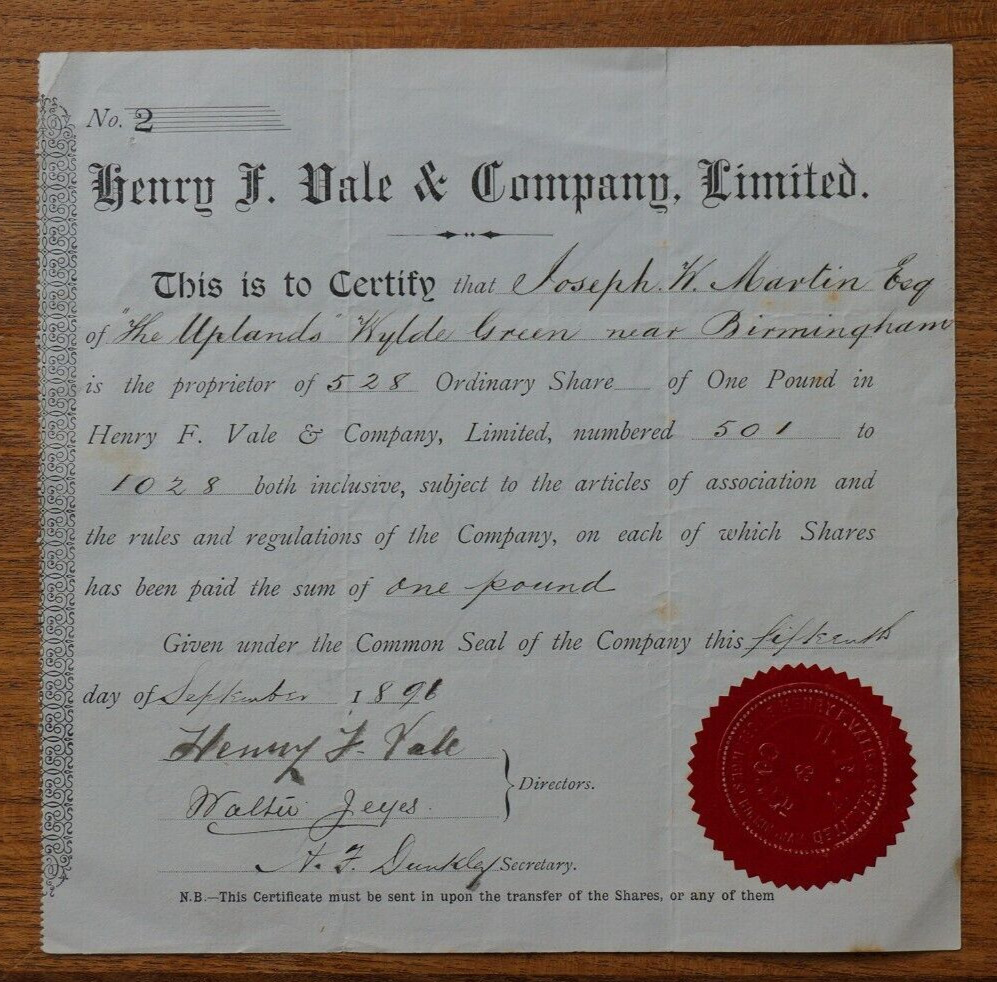 No. 2
Henry F. Vale & Company, Limited.
This is to Certify that Joseph. W. Martin Esq
of "The Uplands" Wylde Green near Birmingham
is the proprietor of 528 Ordinary Share of One Pound in
Henry F. Vale & Company, Limited, numbered 501 to
1028 both inclusive, subject to the articles of association and
the rules and regulations of the Company, on each of which Shares
has been paid the sum of one pound
Given under the Common Seal of the Company this fifteenth
day of September 1896
Henry F. Vale
Walter Jeyes.
Directors.
A. F. Dunkley Secretary.
HENRY F. VALE LIMITED
N.B.—This Certificate must be sent in upon the transfer of the Shares, or any of them